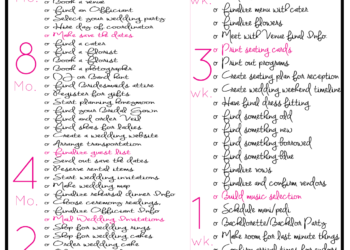 Book a venue
Find an Officiant
Select your wedding party
Have day of coordinator
Make save the dates
8
Mo.
Find a caterer
Find a Florist
Book a Florist
Book a photographer
DJ or Band hunt
Find Bridesmaids attire
Register for gifts
Start planning honeymoon
Find your Bridal Gown
Find and order Veil
Find shoes for ladies
Create a wedding website
Arrange transportation
Finalize guest list
4
Mo.
Send out save the dates
Reserve rental items
Start wedding invitations
Make wedding map
Finalize rehearsal dinner Info
Choose ceremony readings,
Finalize Officiant Info
Mail Wedding Invitations
2
Shop for wedding rings
Shop for wedding cakes
Order wedding cake
wk.
Finalize menu with cater
Finalize flowers
Meet with Venue find Info
Print seating cards
3
wk.
Print out programs
Create seating plan for reception
Create wedding weekend timeline
Have final dress fitting
Find something old
Find something new
Find something borrowed
Find something blue
Finalize vows
Finalize and confirm vendors
Build music selection
1
wk.
Schedule mani/pedi
Bachelorette/Bachelor Party
Make room for last minute things